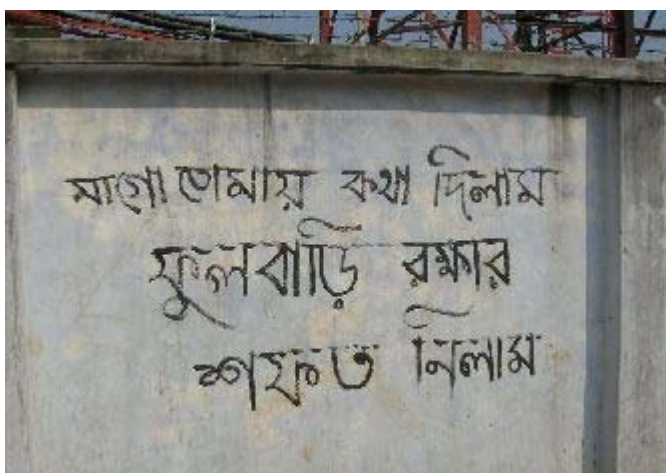 মাগো তোমায় কথা দিলাম
ফুলবাড়ি রক্ষার
শফত নিলাম